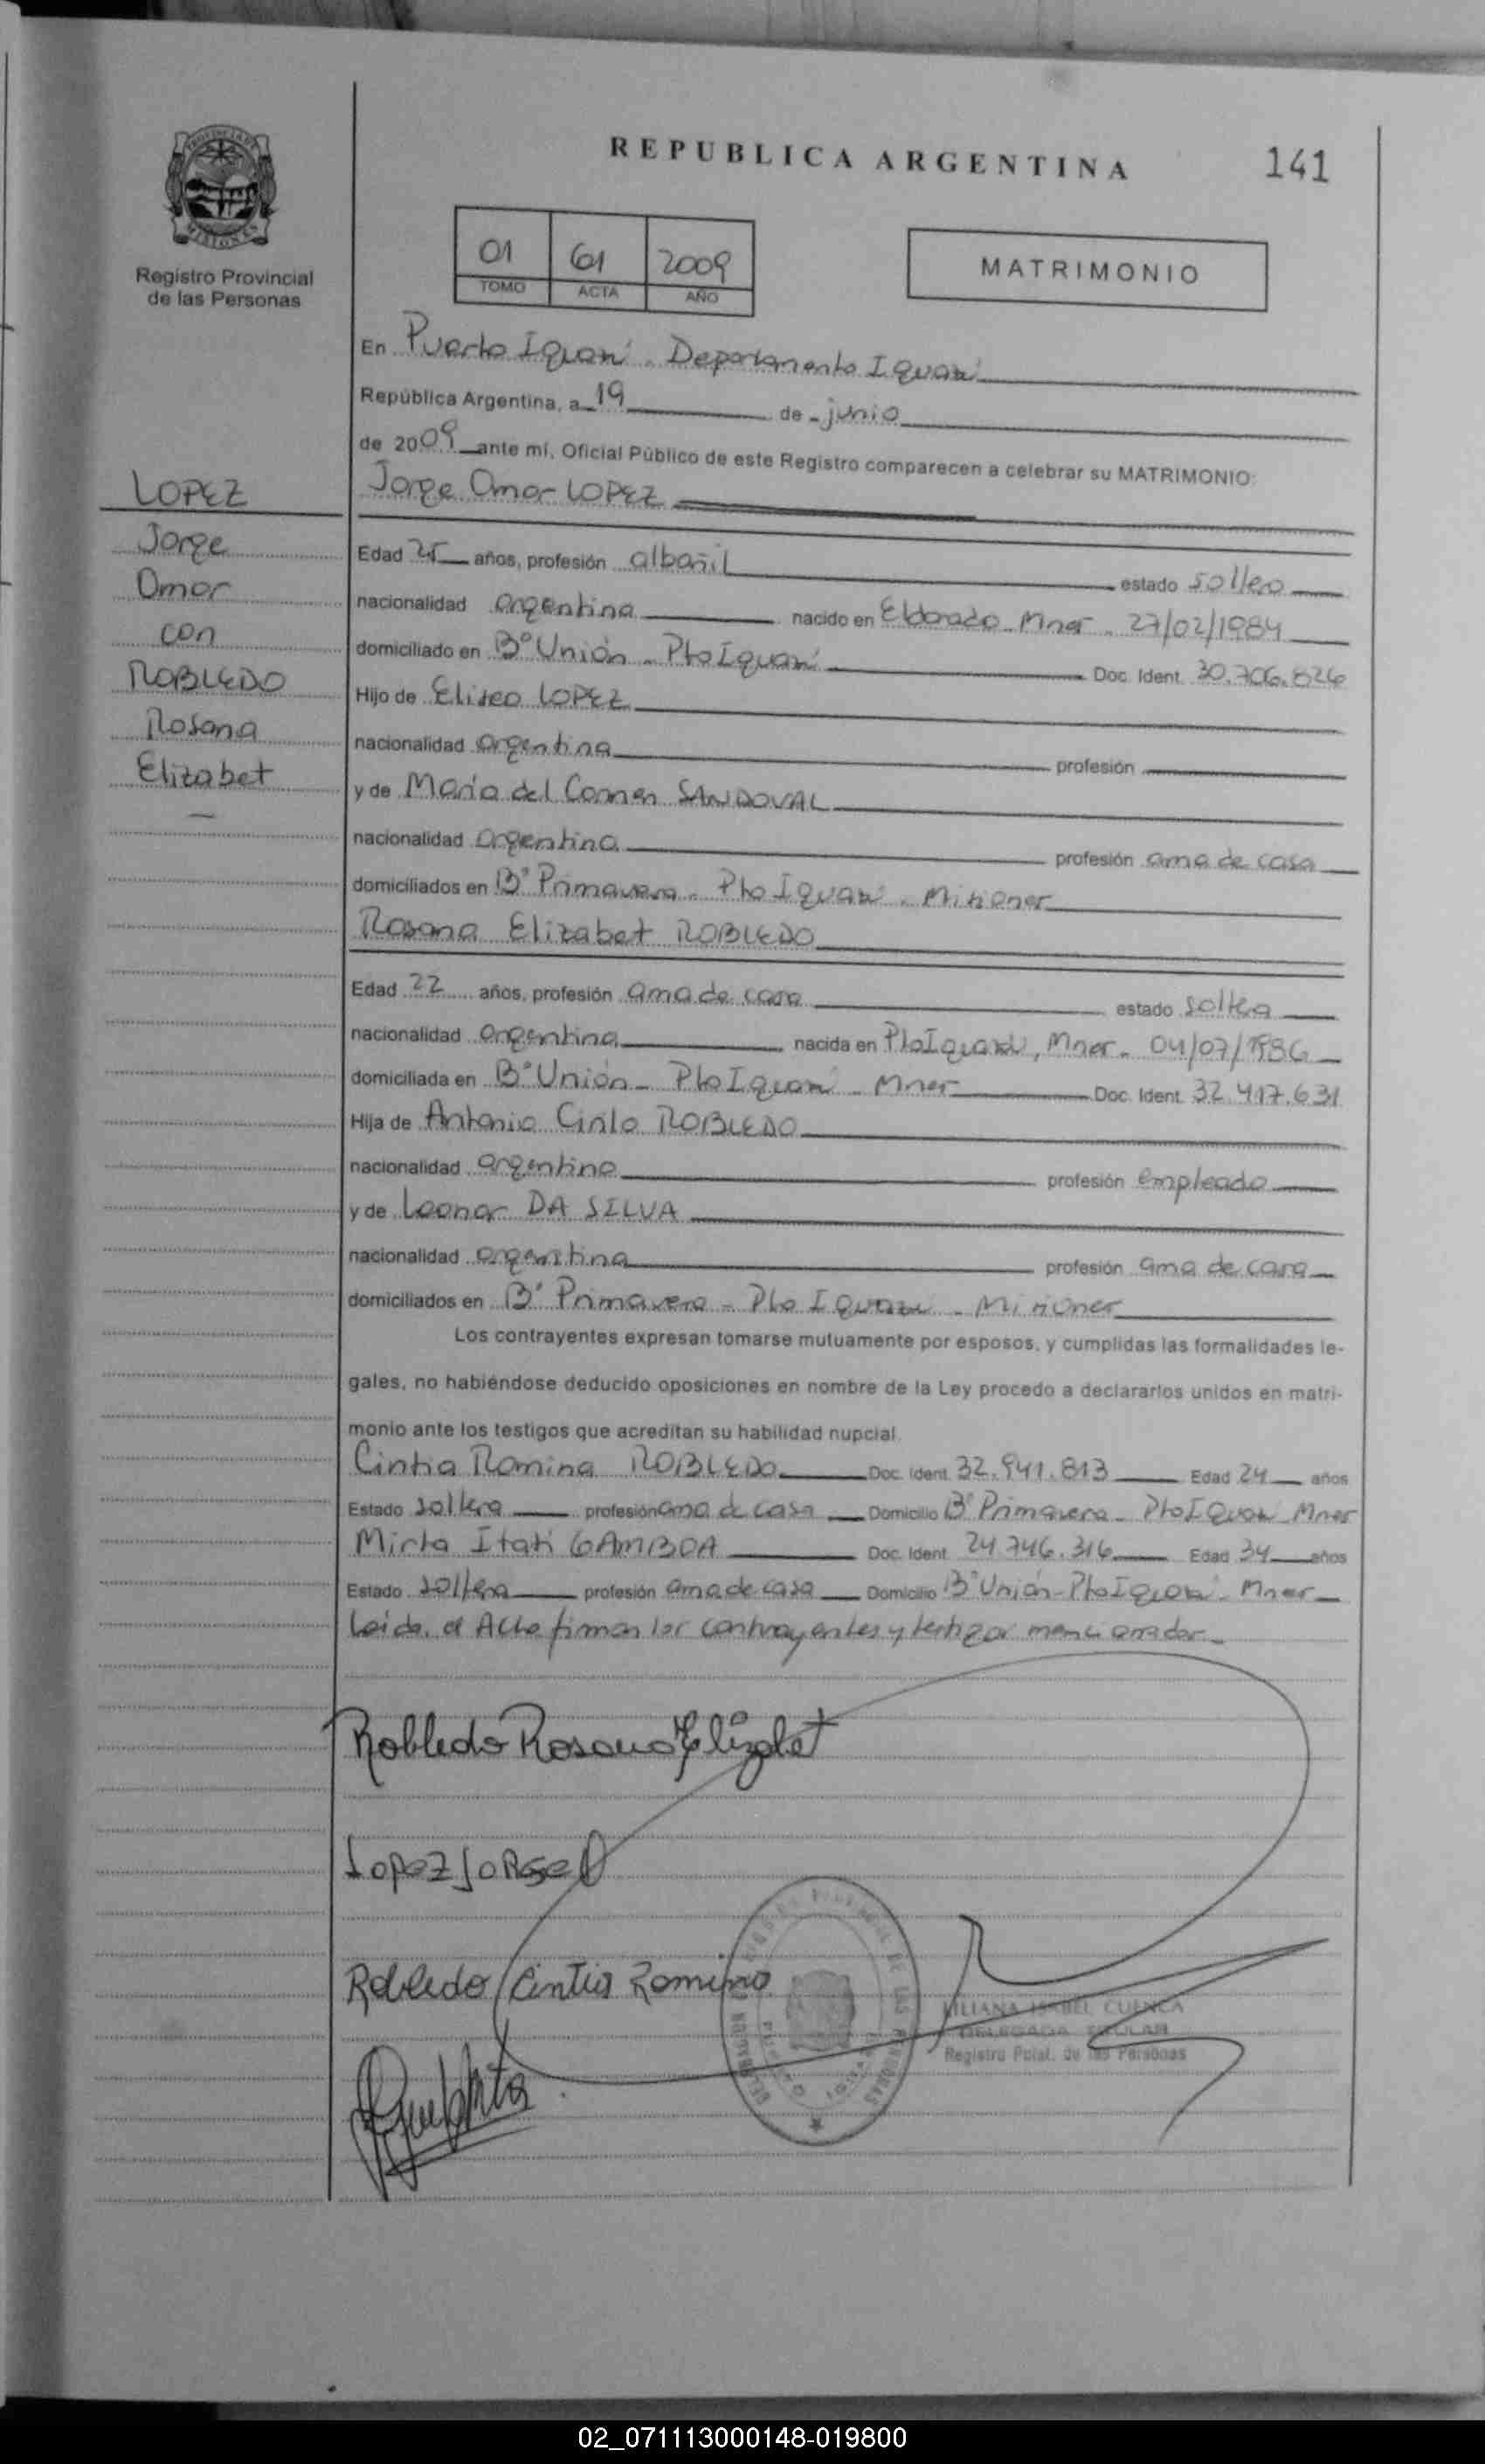 REPUBLICA ARGENTINA
141
PROVINCIA DE
MISIONES
Registro Provincial
de las Personas
01 61 2009
TOMO ACTA AÑO
MATRIMONIO
En Puerto Iguazú - Departamento Iguazú
República Argentina, a 19 de junio
de 2009 ante mí, Oficial Público de este Registro comparecen a celebrar su MATRIMONIO:
Jorge Omar LOPEZ
LOPEZ
Jorge
Omar
con
ROBLEDO
Rosana
Elizabet
Edad 25 años, profesión albañil estado soltero
nacionalidad argentina nacido en Eldorado - Mnes - 27/02/1984
domiciliado en B° Unión - Pto Iguazú Doc. Ident. 30.706.826
Hijo de Eliseo LOPEZ
nacionalidad argentina profesión
y de María del Carmen SANDOVAL
nacionalidad argentina profesión ama de casa
domiciliados en B° Primavera - Pto Iguazú - Misiones
Rosana Elizabet ROBLEDO
Edad 22 años, profesión ama de casa estado soltera
nacionalidad argentina nacida en Pto Iguazú, Mnes - 04/07/1986
domiciliada en B° Unión - Pto Iguazú - Mnes Doc. Ident. 32.417.631
Hija de Antonio Cirilo ROBLEDO
nacionalidad argentino profesión empleado
y de Leonor DA SILVA
nacionalidad argentina profesión ama de casa
domiciliados en B° Primavera - Pto Iguazu - Misiones
Los contrayentes expresan tomarse mutuamente por esposos, y cumplidas las formalidades le-
gales, no habiéndose deducido oposiciones en nombre de la Ley procedo a declararlos unidos en matri-
monio ante los testigos que acreditan su habilidad nupcial.
Cintia Romina ROBLEDO Doc. Ident. 32.941.813 Edad 24 años
Estado soltera profesión ama de casa Domicilio B° Primavera - Pto Iguazú Mnes
Mirta Itatí GAMBOA Doc. Ident. 24.746.316 Edad 34 años
Estado soltera profesión ama de casa Domicilio B° Unión - Pto Iguazú - Mnes
Leida el Acta firman los contrayentes y testigos mencionados -
Robledo Rosana Elizabet
Lopez Jorge O
Robledo Cintia Romina
LILIANA ISABEL CUENCA
DELEGADA TITULAR
Registro Pcial. de las Personas
02_071113000148-019800